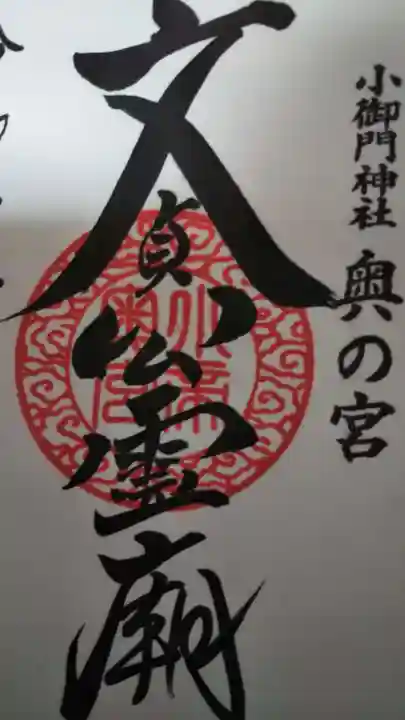 小御門神社 奥の宮
文貞公霊廟